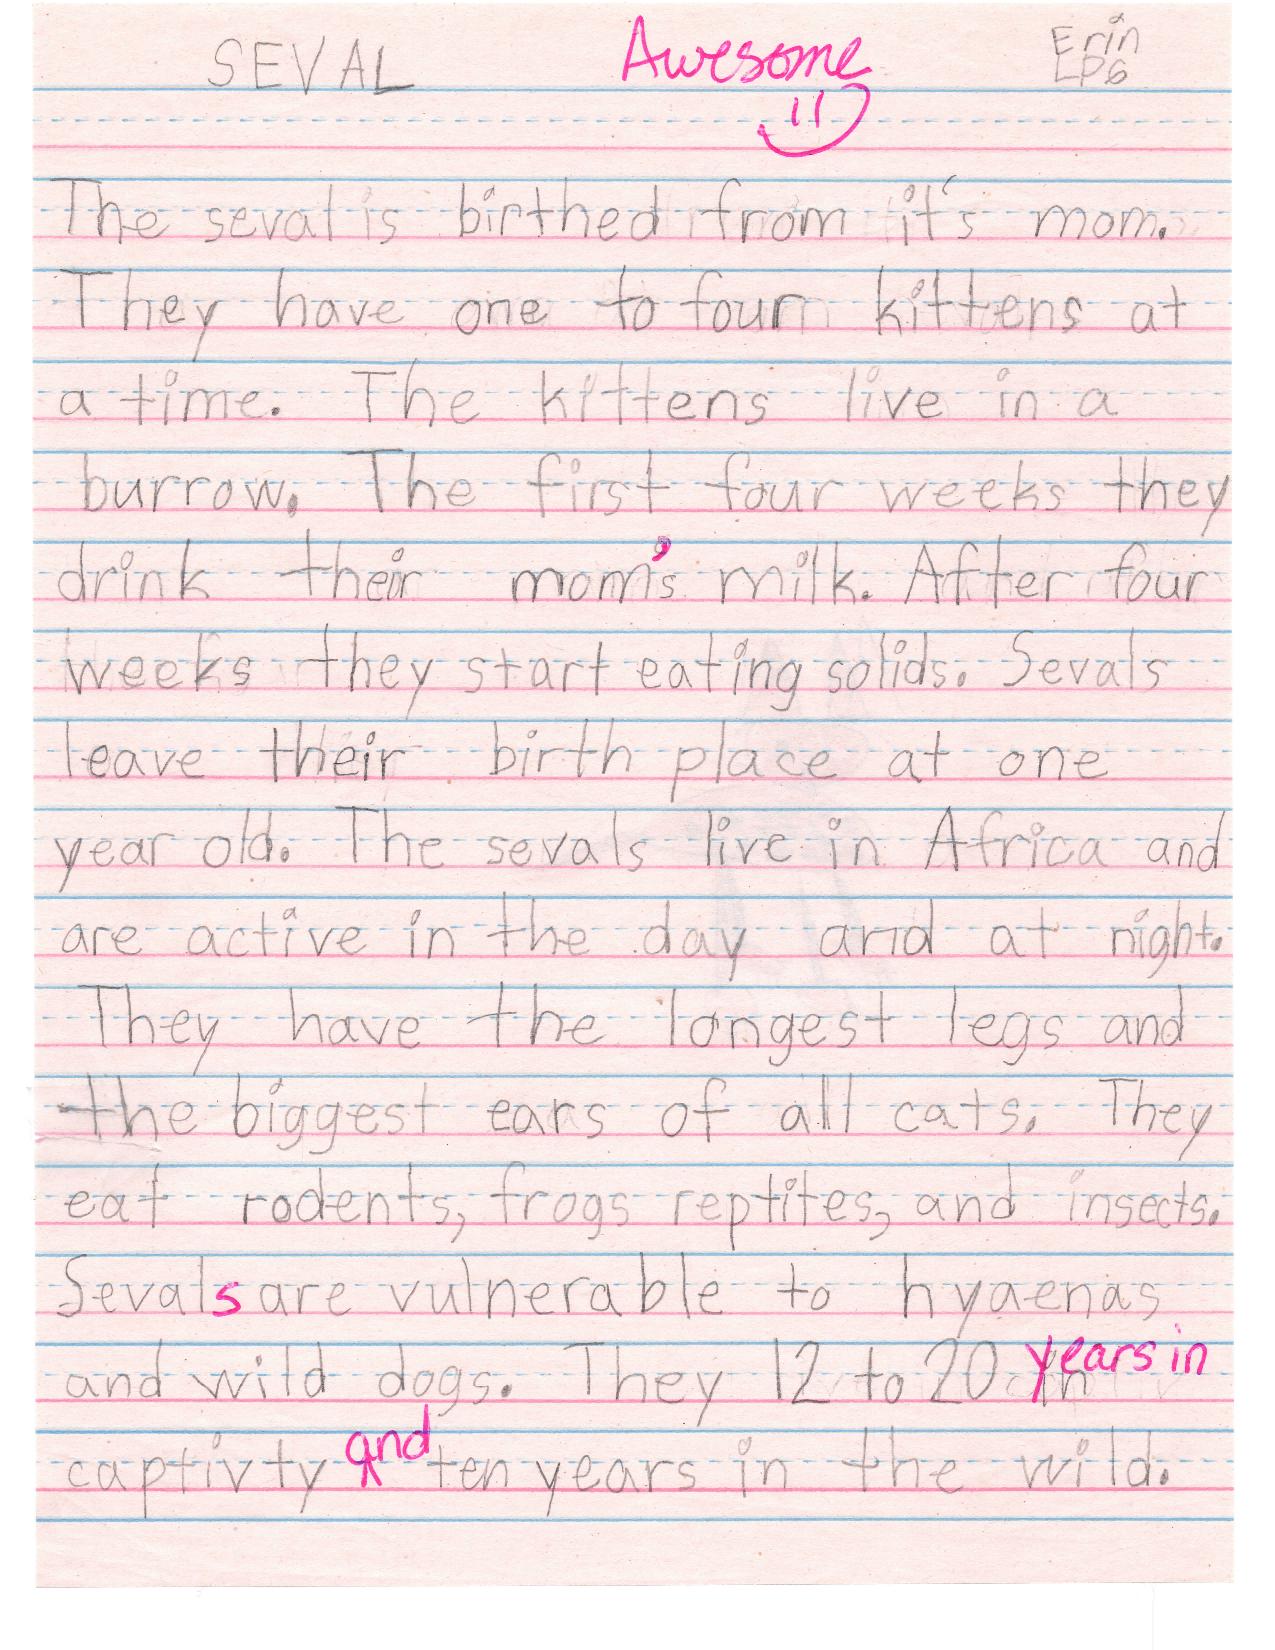 SEVAL Awesome Erin
LP6
The seval is birthed from it's mom.
They have one to four kittens at
a time. The kittens live in a
burrow. The first four weeks they
drink their mom's milk. After four
weeks they start eating solids. Sevals
leave their birth place at one
year old. The sevals live in Africa and
are active in the day and at night.
They have the longest legs and
the biggest ears of all cats. They
eat rodents, frogs reptites, and insects.
Sevals are vulnerable to hyaenas
and wild dogs. They 12 to 20 in years in
captivty and ten years in the wild.